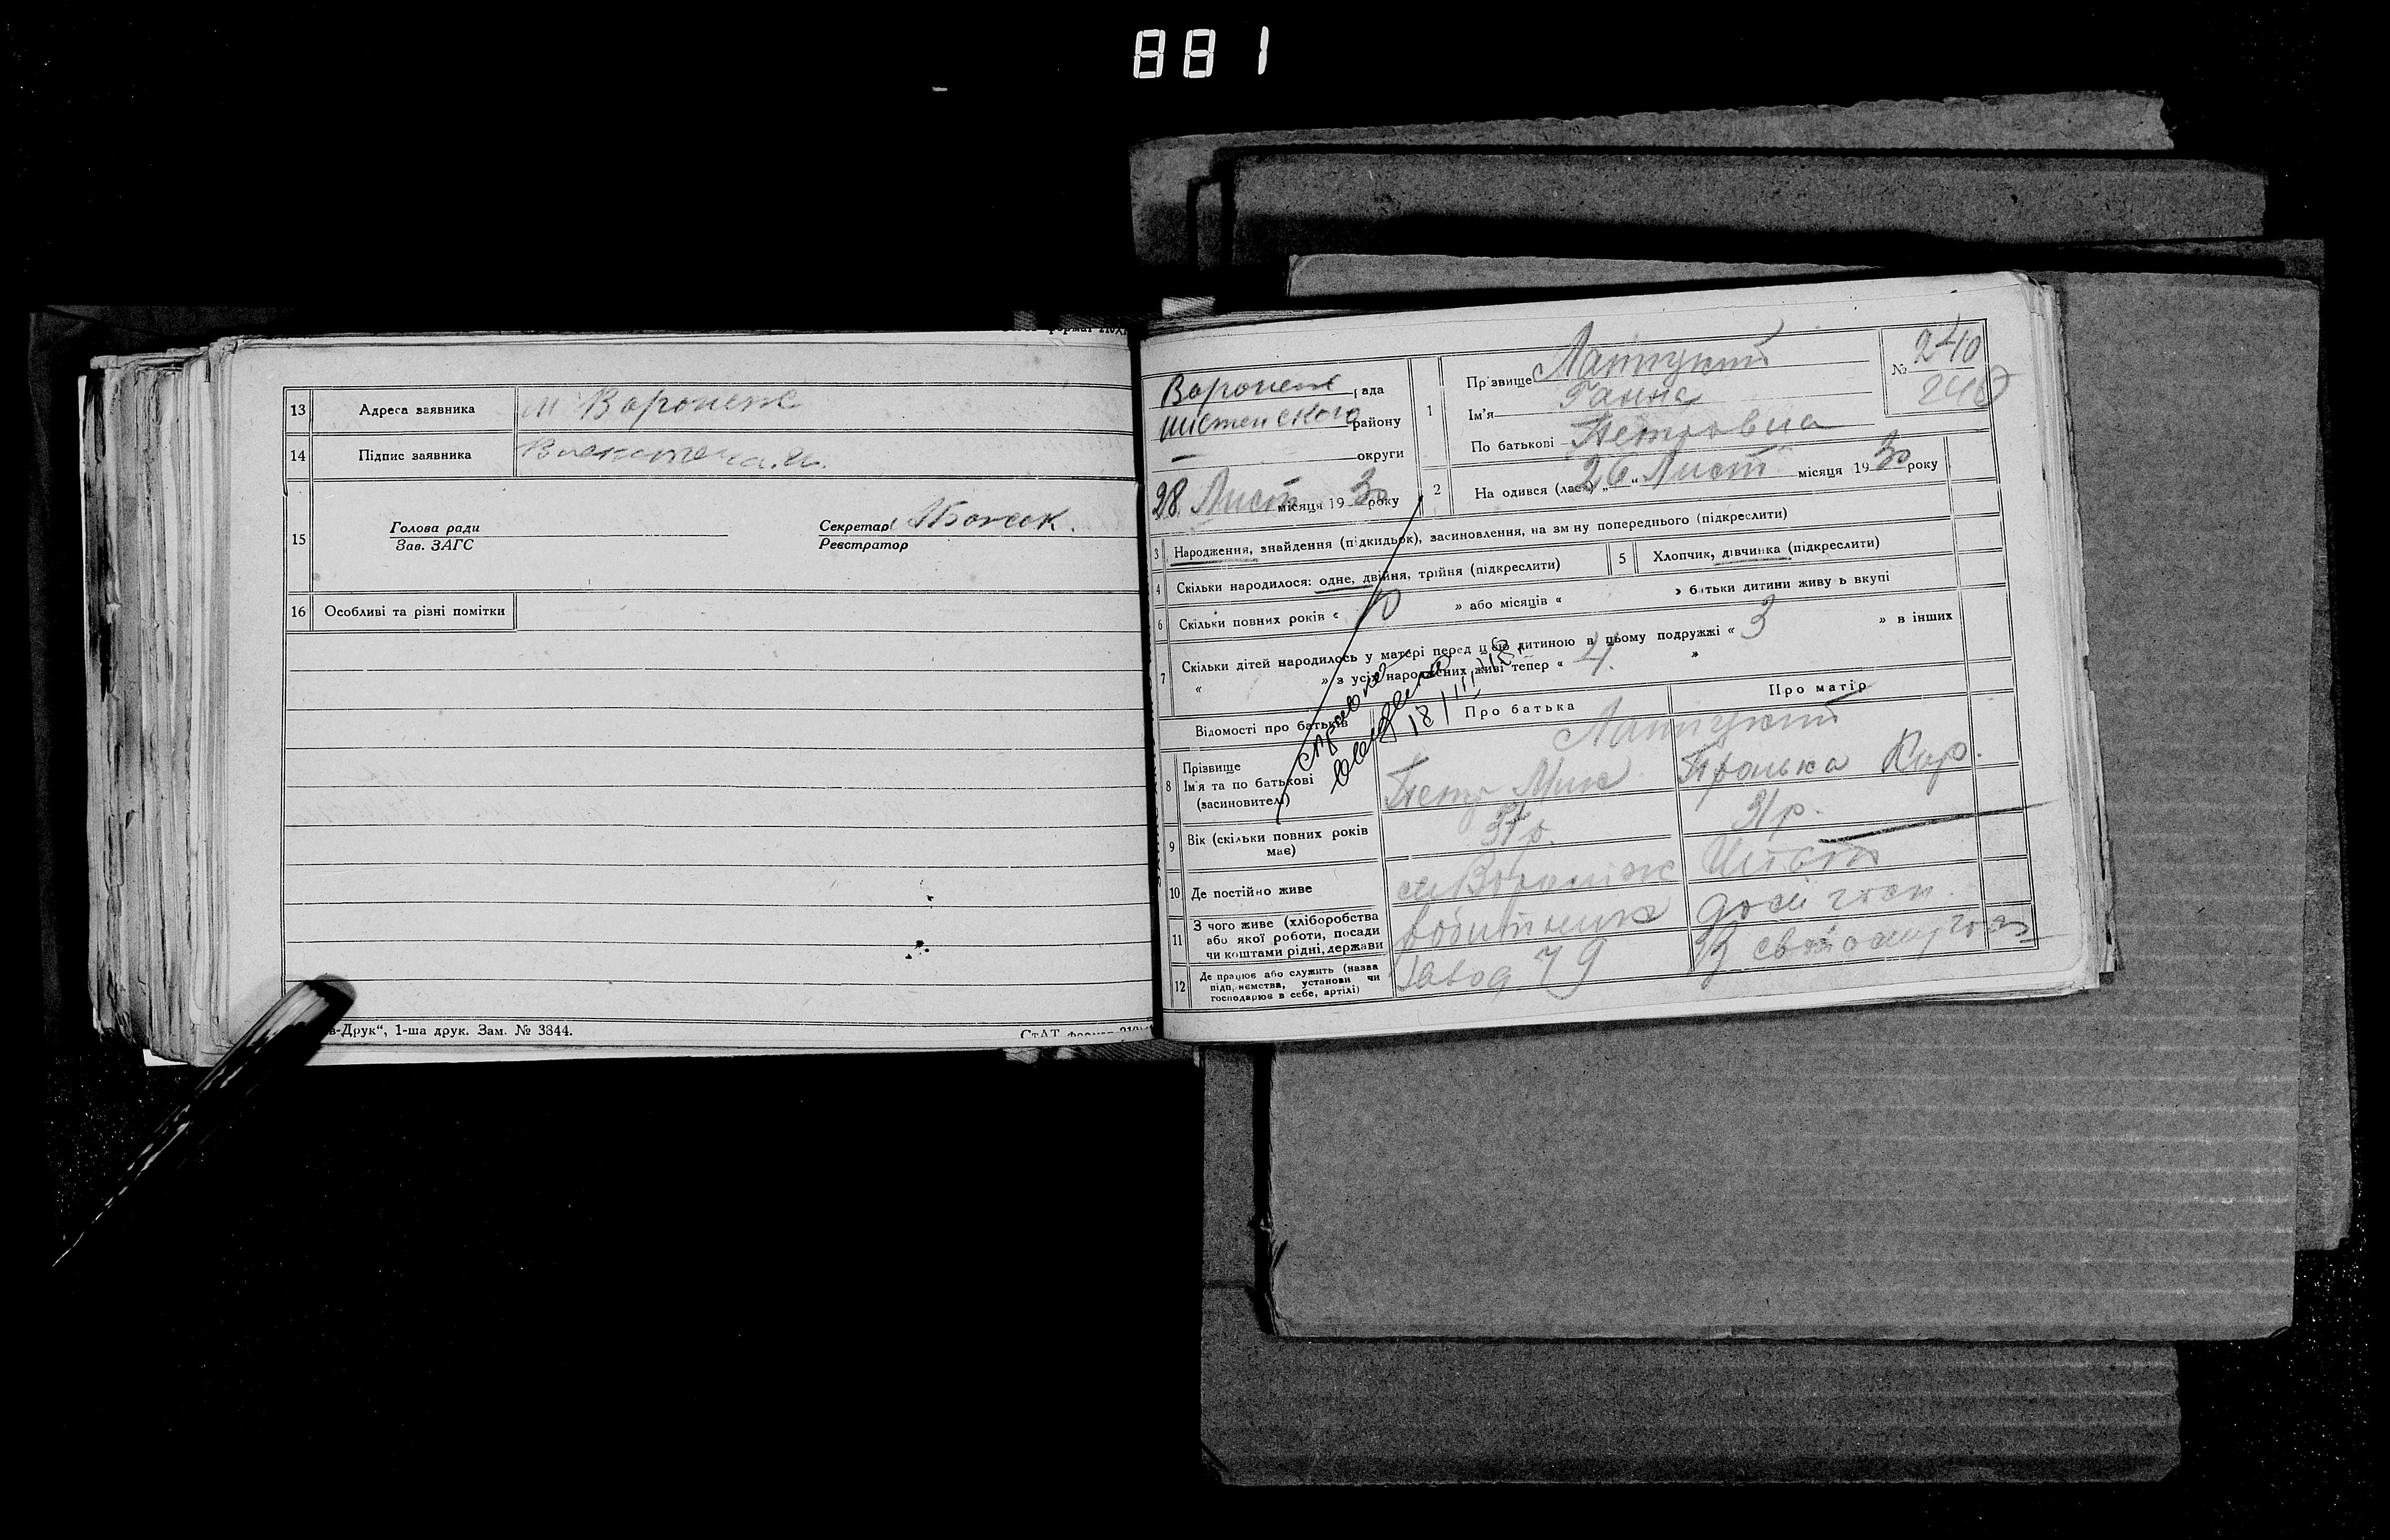 881
13 Адреса заявника м Воронеж
14 Підпис заявника
15 Голова ради
Зав. ЗАГС
Секретар
Реєстратор
16 Особливі та різні помітки
в-Друк“, 1-ша друк. Зам. № 3844.
СтАТ формат
Воронеж рада
району
округи
28 Лист місяця 1930 року
1 Прізвище
Ім'я Ганна
По батькові Петровна
№ 240
240
2 Народився (лася) „26“ Лист місяця 1930 року
3 Народження, знайдення (підкидьок), засиновлення, на зміну попереднього (підкреслити)
4 Скільки народилося: одне, двійня, трійня (підкреслити)
5 Хлопчик, дівчинка (підкреслити)
6 Скільки повних років « 10 » або місяців « » батьки дитини живуть вкупі
7 Скільки дітей народилось у матері перед цією дитиною в цьому подружжі « 3 » в інших
« » з усіх народжених живі тепер « 4. »
Відомості про батьків
Про батька
Про матір
8 Прізвище
Ім'я та по батькові
(засновителі)
Петр Мих
Кир.
9 Вік (скільки повних років має)
37 р.
31 р.
10 Де постійно живе
м Вороніж
11 З чого живе (хліборобства
або якої роботи, посади
чи коштами рідні, держави
робитник
дом госп.
12 Де працює або служить (назва
підприємства, установи чи
господарює в себе, артілі)
Завод 79
В своему госп